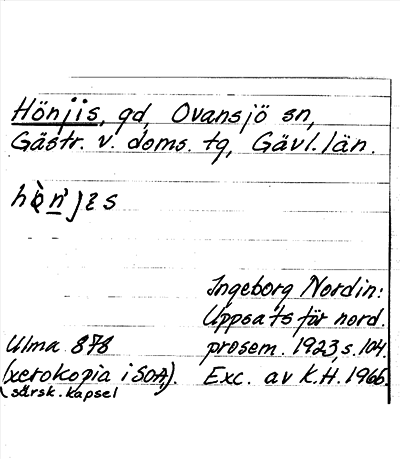 Hönjis, gd, Ovansjö sn,
Gästr. v. doms. tg, Gävl. län.
Ingeborg Nordin:
Uppsats för nord.
Ulma 878 prosem. 1923, s. 104.
(xerokopia i SOA). Exc. av K.H. 1966.
särsk. kapsel